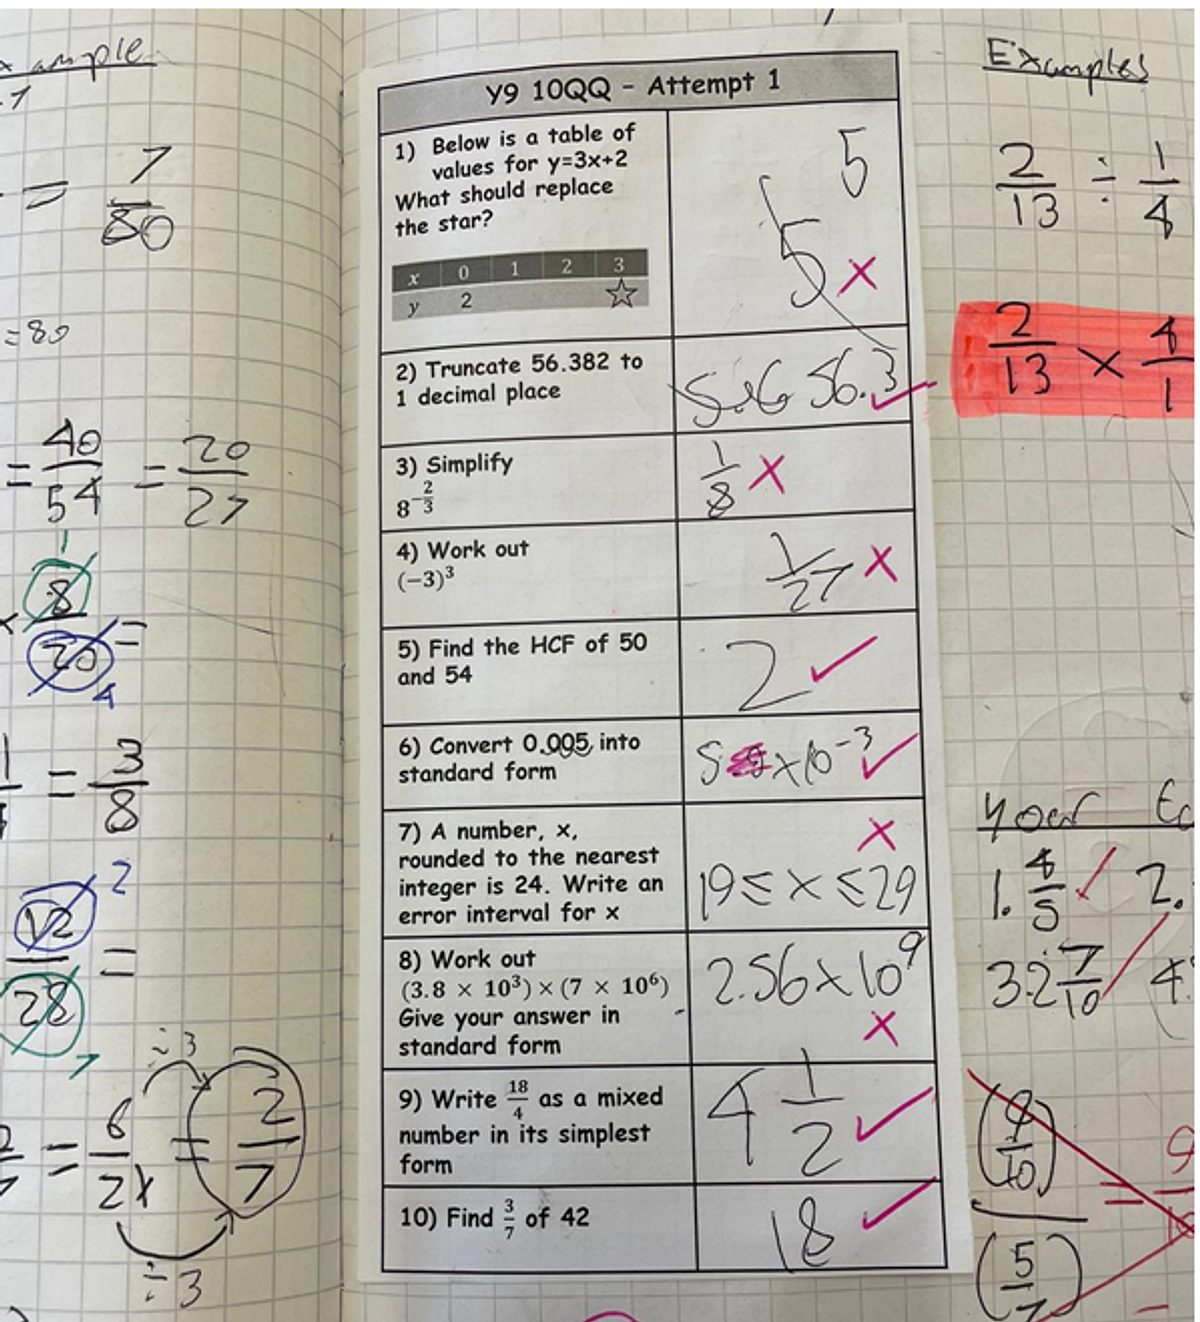 Example
= 7/80
=80
= 40/54 = 20/27
1
8
20 =
4
= 3/8
12 2
28 =
7
÷3
= 6/21 = 2/7
÷3
Y9 10QQ - Attempt 1
1) Below is a table of
values for y=3x+2
What should replace
the star?
x 0 1 2 3
y 2 ☆
5
5 ×
2) Truncate 56.382 to
1 decimal place
56.3 ✓
3) Simplify
8^(-2/3)
1/8 ×
4) Work out
(−3)³
1/27 ×
5) Find the HCF of 50
and 54
2 ✓
6) Convert 0.005 into
standard form
5 ×10⁻³ ✓
7) A number, x,
rounded to the nearest
integer is 24. Write an
error interval for x
×
19 ≤ x ≤ 29
8) Work out
(3.8 × 10³) × (7 × 10⁶)
Give your answer in
standard form
2.56 × 10⁹
×
9) Write 18/4 as a mixed
number in its simplest
form
4 1/2 ✓
10) Find 3/7 of 42
18 ✓
Examples
2/13 ÷ 1/4
2/13 × 4/1
your
1. 4/5 ✓ 2.
3. 2 7/10 4.
(9/10)
=
(5/7)